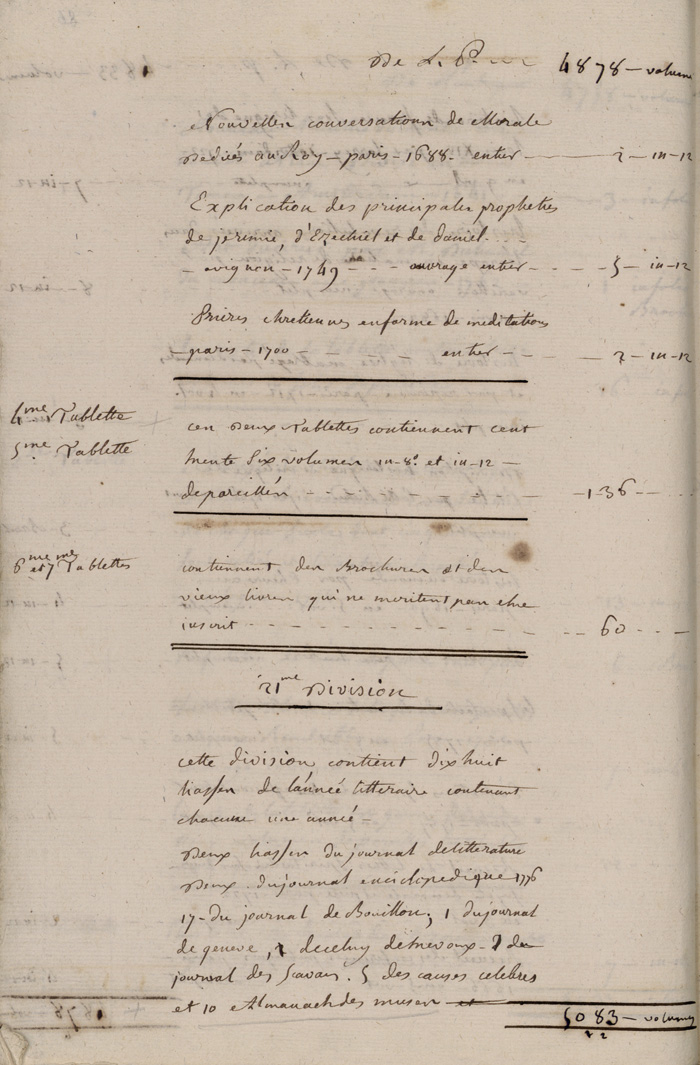 De L. P. 4878 - volum
Nouvelles conversations de Morale
Dediés au Roy - paris - 1688 - entier - 2 - in-12
Explication des principales prophetes
de jeremie, d'Ezechiel et de daniel. - - -
- avignon - 1749 - - - ouvrage entier - - - - 5 - in-12
Prieres chretiennes en forme de meditations
- paris - 1700 - - - - entier - - - 2 - in-12
4me Tablette
5me Tablette
ces Deux Tablettes contiennent cent
trente Six volumes in-8° et in-12 -
depareillés - - - - - - - - 136 - -
6me et 7me Tablettes
contiennent des Brochures et des
vieux livres qui ne meritent pas etre
inscrit - - - - - - - - - - 60 - - -
21me Division
cette division contient dix huit
liasses de l'anneé litteraire contenant
chacune une anneé -
Deux liasses du journal de litterature
Deux du journal enciclopedique 1776
17 - du journal de Bouillon; 1 du journal
de geneve, de celuy de trevoux - du
journal des Scavans. 5 des causes celebres
et 10 Almanach des muses
5083 - volumes